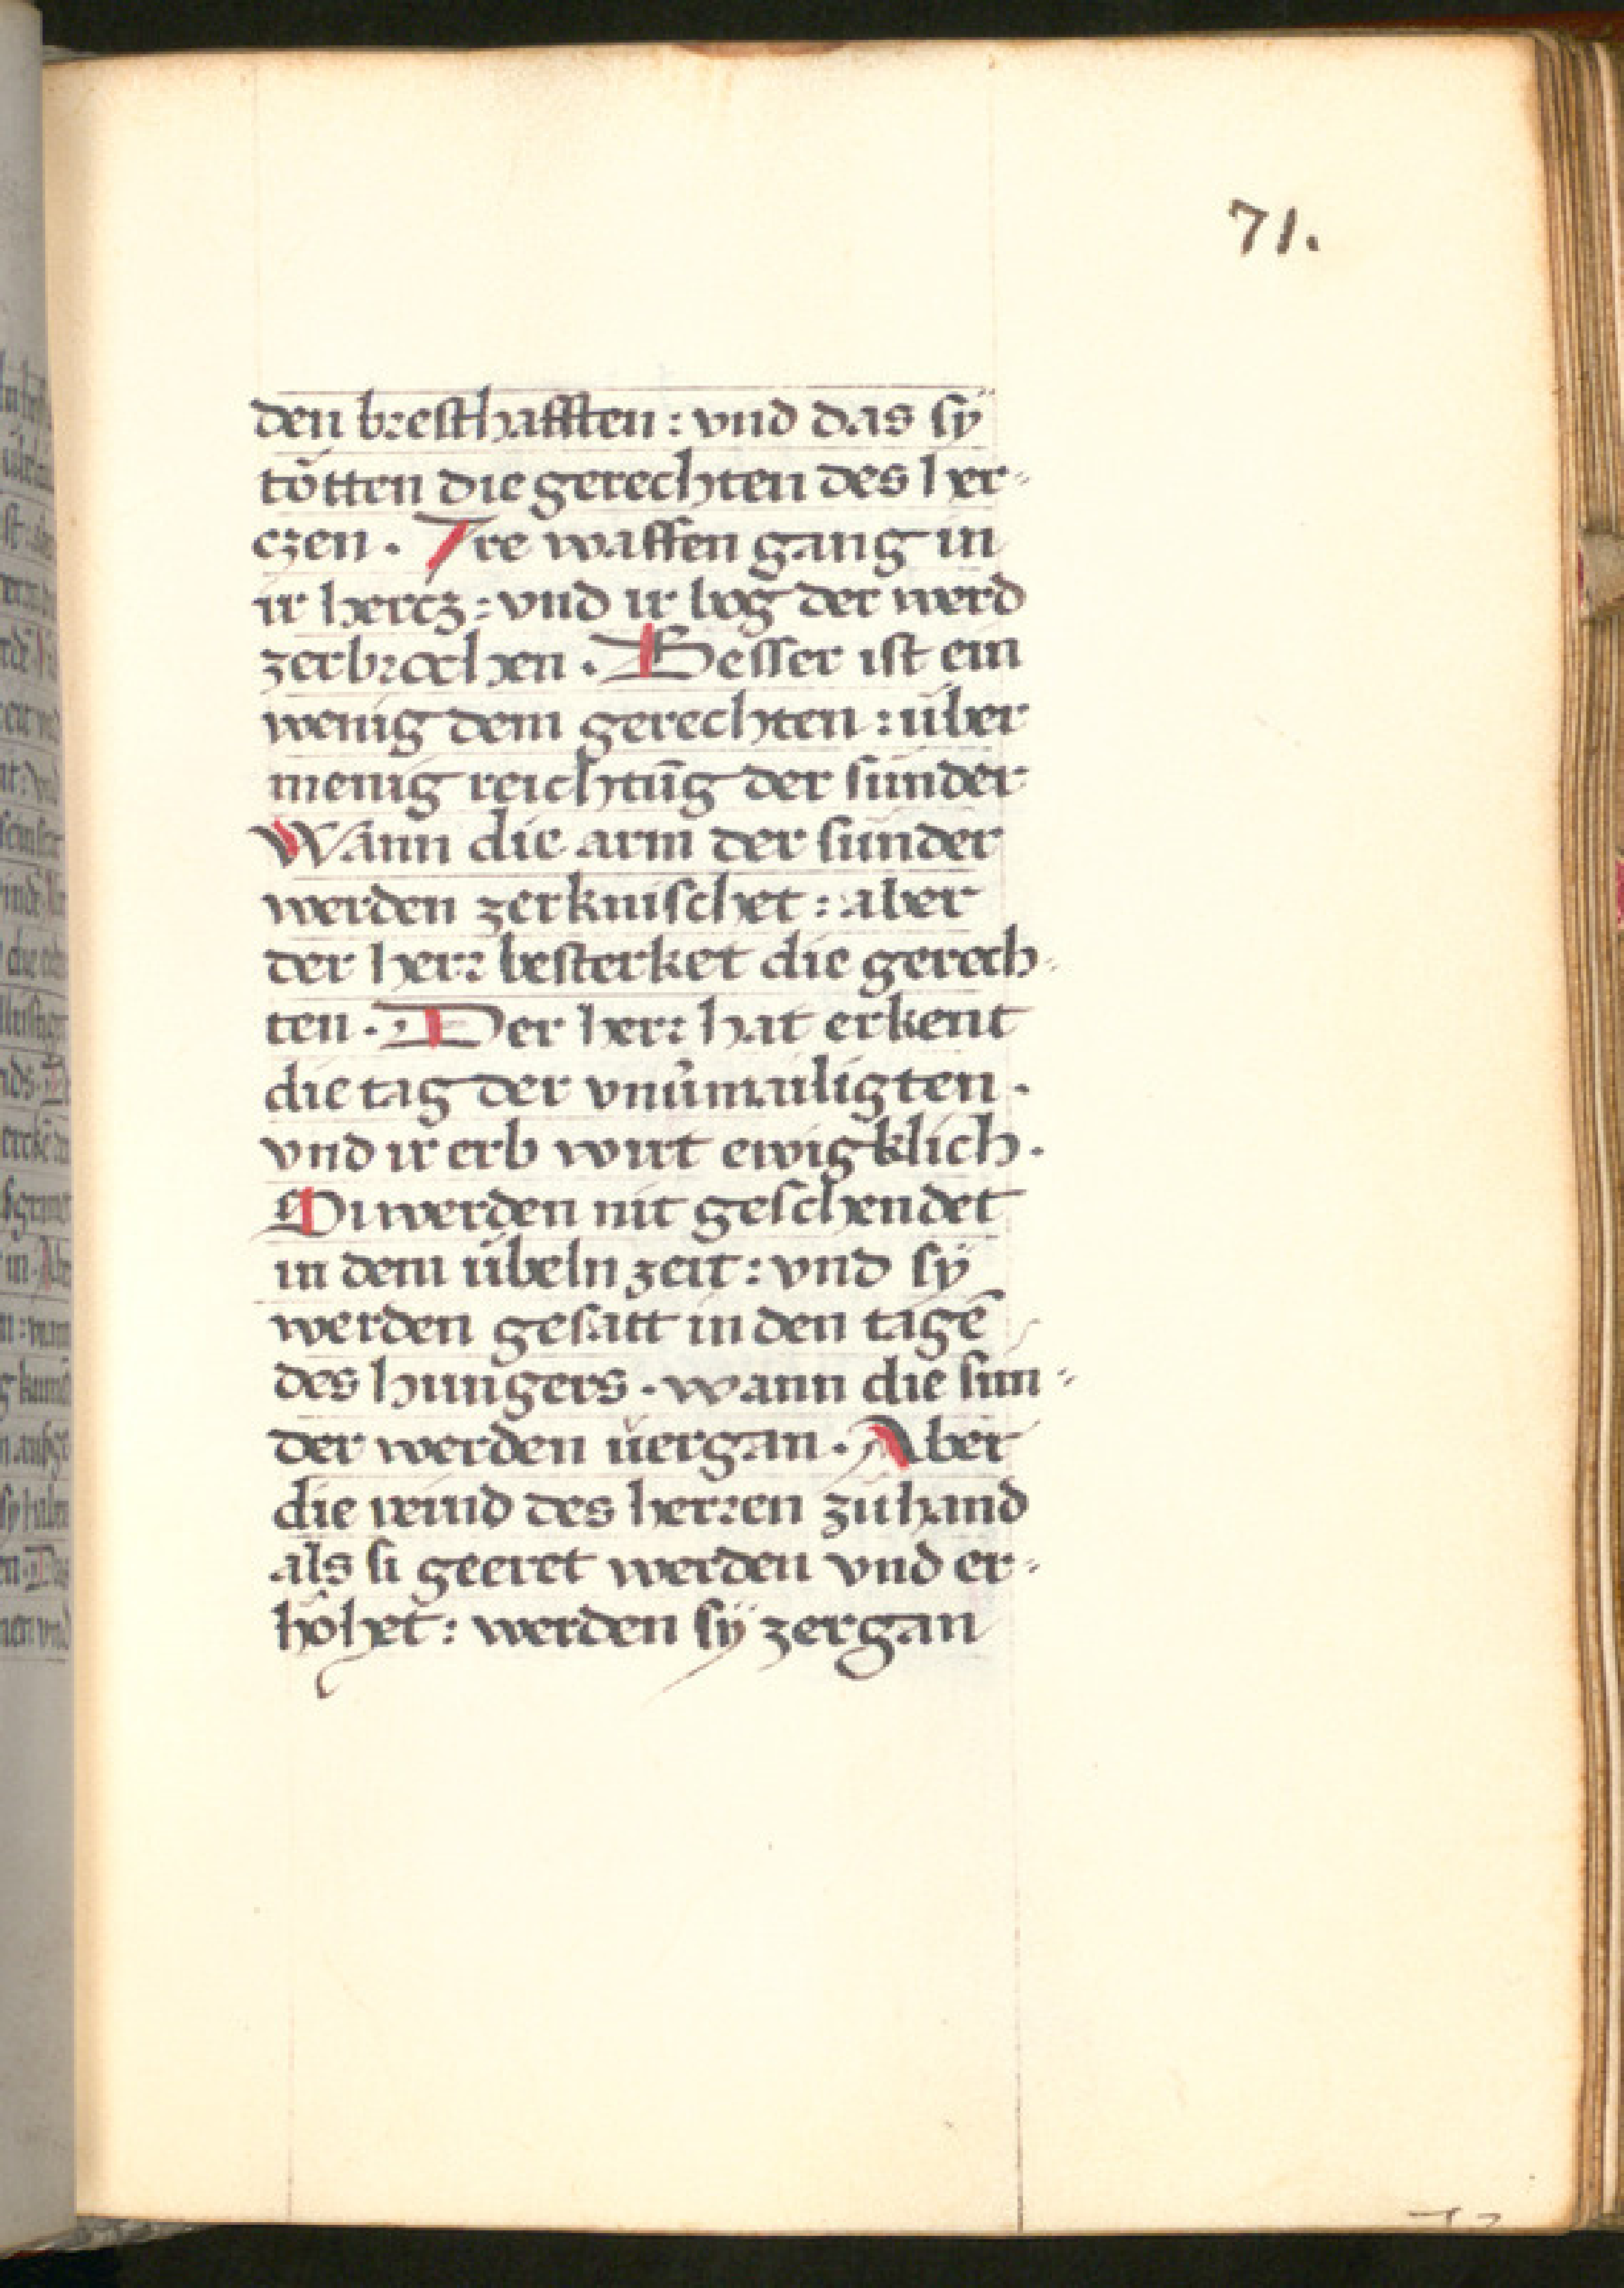 71.
den bresthafften : vnd das sÿ
tötten die gerechten des her⸗
czen · Ire waffen gang in
ir hercz : vnd ir bog der werd
zerbrochen · Besser ist ein
wenig dem gerechten : über
menig reichtūg der sünder
Wann die arm der sünder
werden zerknischet : aber
der herr besterket die gerech⸗
ten · Der herr hat erkent
die tag der vnūmailigten ·
vnd ir erb wirt ewigklich ·
Si werden nit geschendet
in dem übeln zeit : vnd sÿ
werden gesatt in den tagē
des hungers · wann die sün⸗
der werden uergan · Aber
die veind des herren zůhand
als si geeret werden vnd er⸗
höhet : werden sÿ zergan